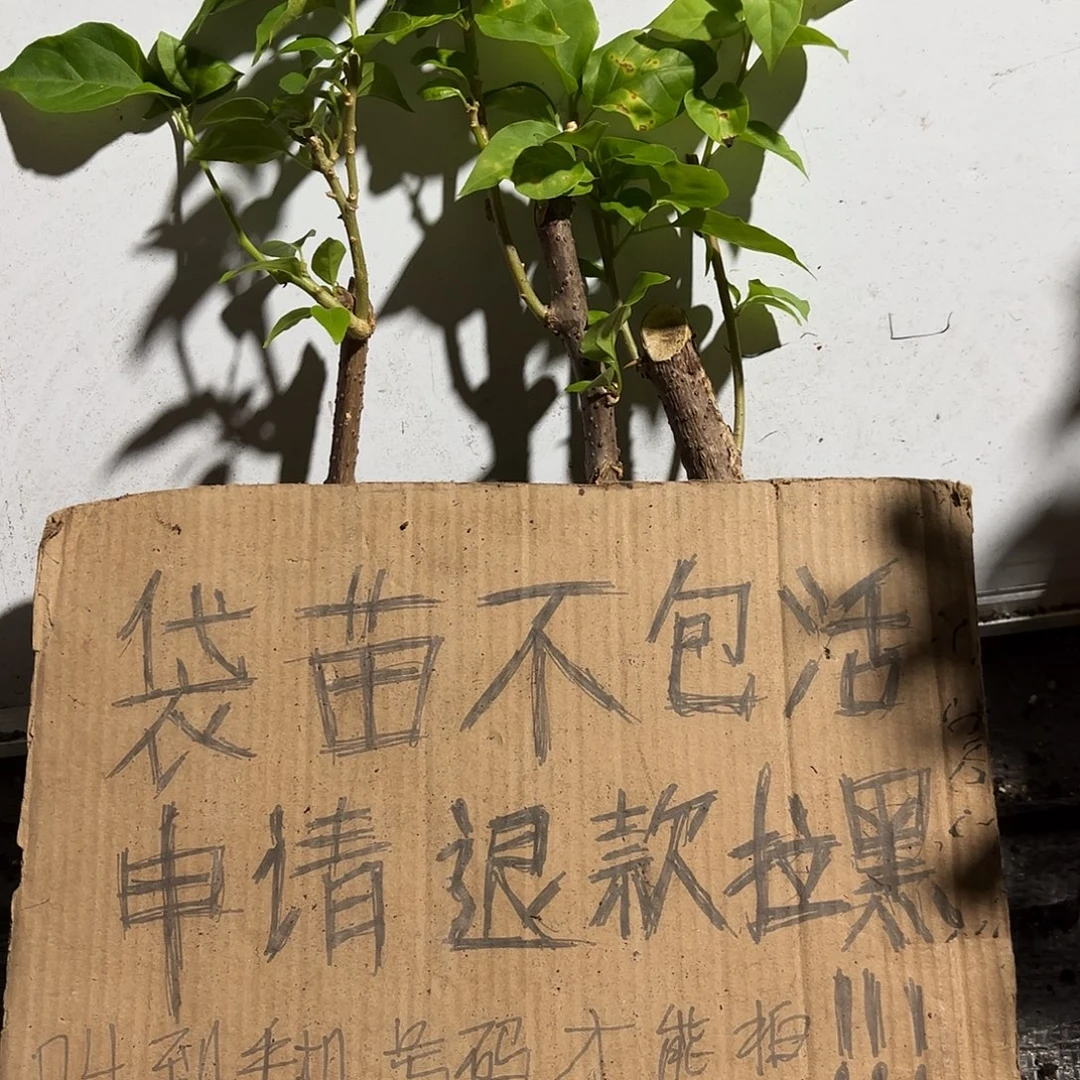 袋苗不包活
申请退款拉黑
!!!
叫到手机号码才能拍